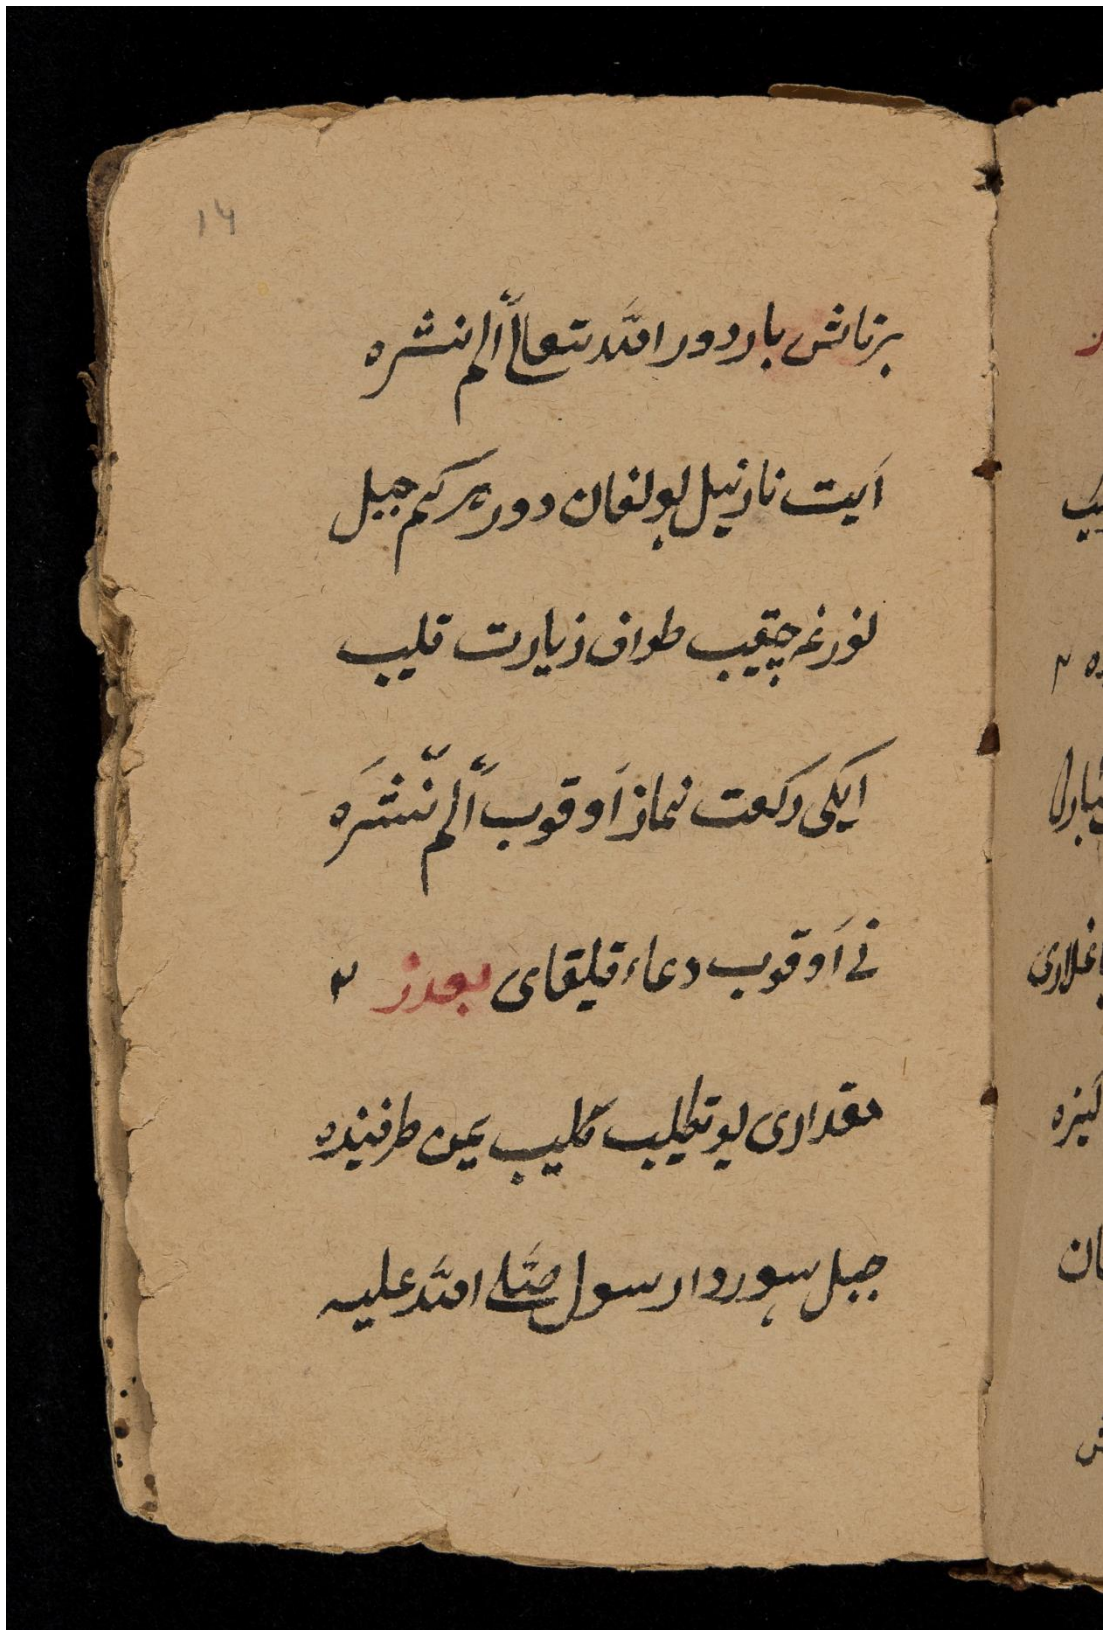 ۱۴
بر تاش باردور الله تعالی الم نشره
آیت نازنیل بولغان دور هر کم جبل
نورغه چقیب طواف زیارت قلیب
ایکی رکعت نماز اوقوب اَلَم نَشَره
نے اوقوب دعاء قیلقای بعدز ۲
مقداری یوقلیب کلیب یمن طرفنیده
جبل سور دا رسول صلی الله علیه